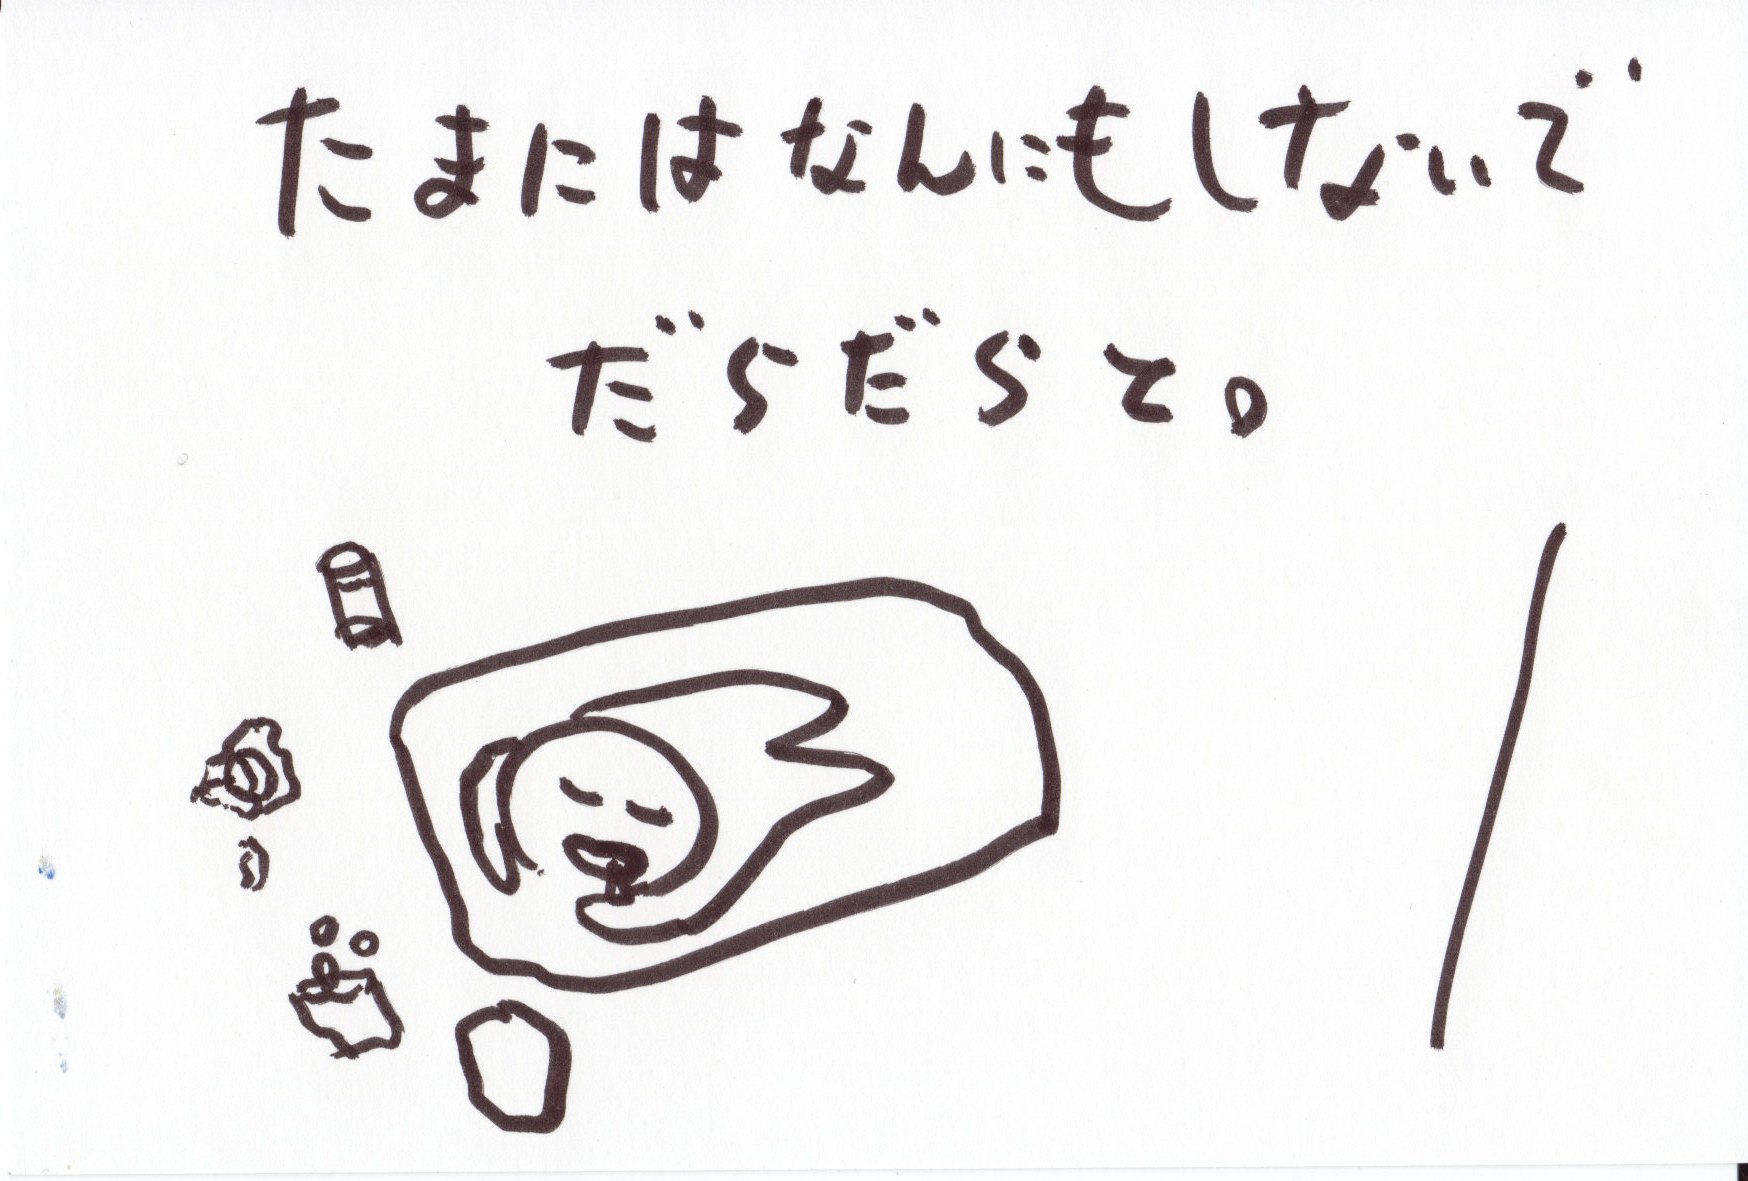 たまにはなんにもしないで
だらだらと。